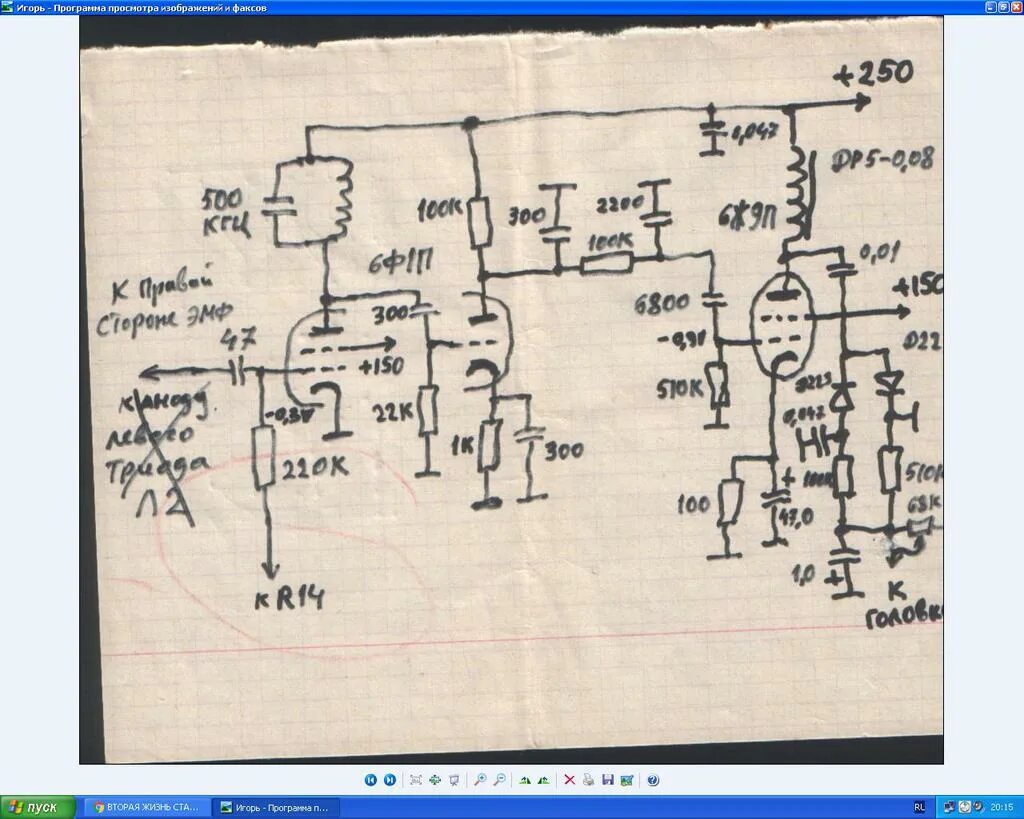 Игорь - Программа просмотра изображений и факсов
+250
0,047
ДР5-0,08
500
КГЦ
100К
300
2200
6Ж9П
100К
6Ф1П
0,01
К Правой
Стороне ЭМФ
300
6800
+150
47
-0,9В
Д22
+150
510К
Д223
к аноду
левого
Триода
Л2
-0,3В
22К
0,047
1К
300
220К
100К
510К
100
47,0
68К
1,0
К
ГОЛОВК
К R14
пуск
ВТОРАЯ ЖИЗНЬ СТА...
Игорь - Программа п...
RL
20:15